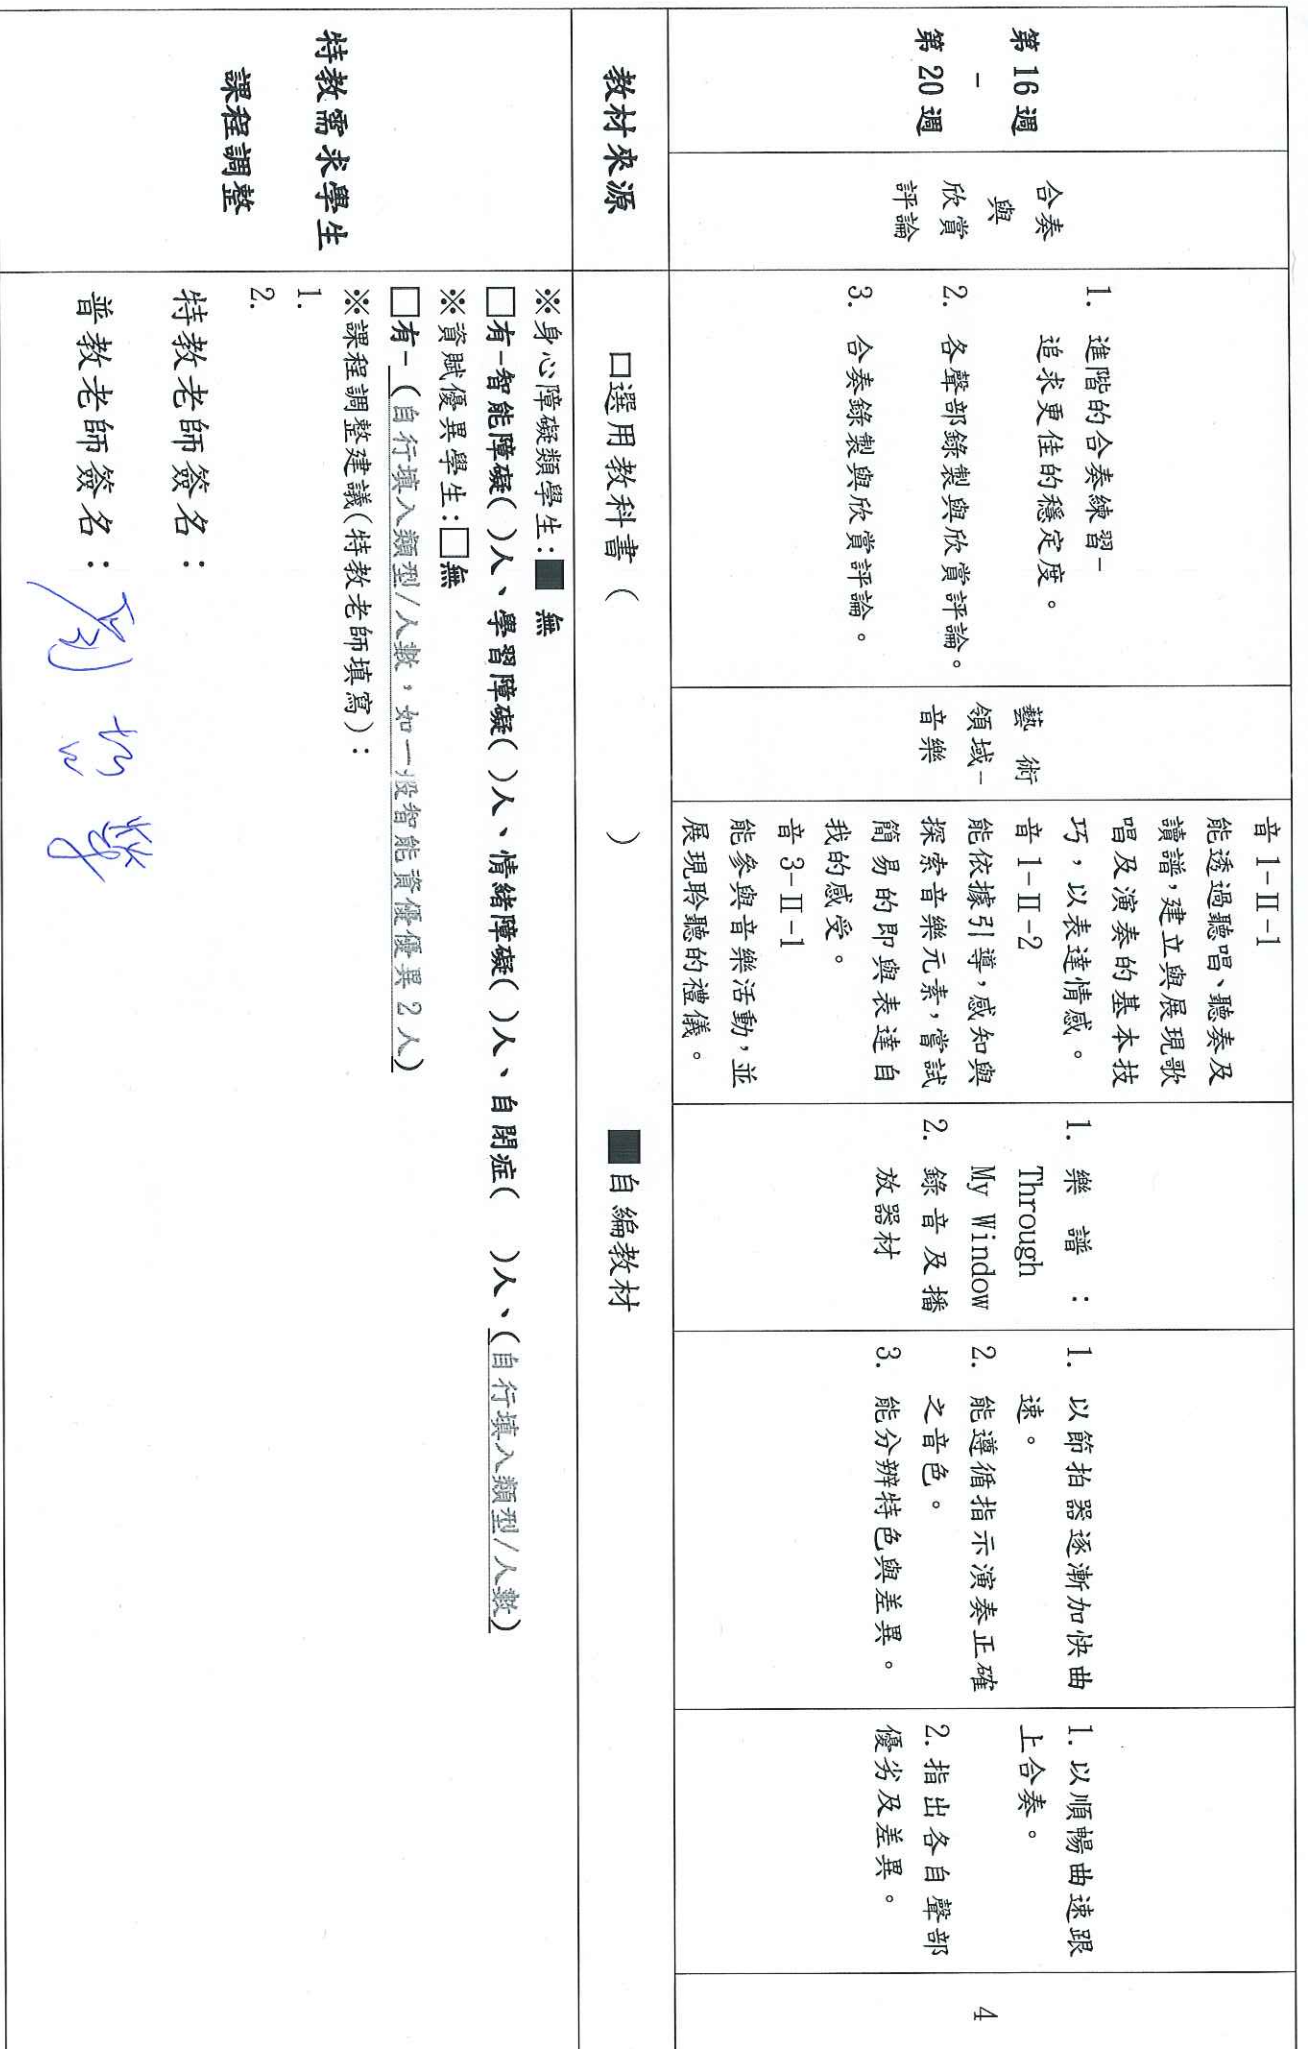 第 16 週
-
第 20 週
合奏
與
欣賞
評論
1. 進階的合奏練習-
追求更佳的穩定度。
2. 各聲部錄製與欣賞評論。
3. 合奏錄製與欣賞評論。
藝 術
領域-
音樂
音 1-Ⅱ-1
能透過聽唱、聽奏及
讀譜,建立與展現歌
唱及演奏的基本技
巧,以表達情感。
音 1-Ⅱ-2
能依據引導,感知與
探索音樂元素,嘗試
簡易的即興表達自
我的感受。
音 3-Ⅱ-1
能參與音樂活動,並
展現聆聽的禮儀。
1. 樂 譜 :
Through
My Window
2. 錄音及播
放器材
1. 以節拍器逐漸加快曲
速。
2. 能遵循指示演奏正確
之音色。
3. 能分辨特色與差異。
1. 以順暢曲速跟
上合奏。
2. 指出各自聲部
優劣及差異。
4
教材來源
□選用教科書 ( ) ■自編教材
特教需求學生
課程調整
※身心障礙類學生:■ 無
□有-智能障礙( )人、學習障礙( )人、情緒障礙( )人、自閉症( )人、(自行填入類型/人數)
※資賦優異學生:□無
□有-(自行填入類型/人數,如一般智能資優優異 2 人)
※課程調整建議(特教老師填寫):
1.
2.
特教老師簽名:
普教老師簽名:劉